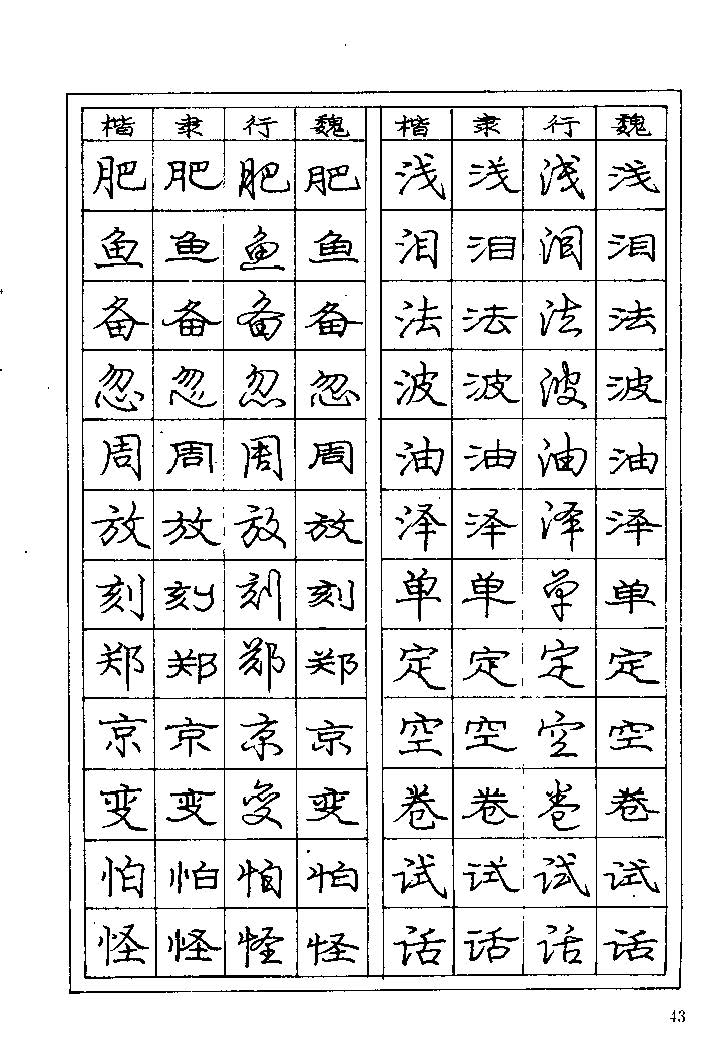 楷 隶 行 魏 楷 隶 行 魏
肥 肥 肥 肥 浅 浅 浅 浅
鱼 鱼 鱼 鱼 泪 泪 泪 泪
备 备 备 备 法 法 法 法
忽 忽 忽 忽 波 波 波 波
周 周 周 周 油 油 油 油
放 放 放 放 泽 泽 泽 泽
刻 刻 刻 刻 单 单 单 单
郑 郑 郑 郑 定 定 定 定
京 京 京 京 空 空 空 空
变 变 变 变 卷 卷 卷 卷
怕 怕 怕 怕 试 试 试 试
怪 怪 怪 怪 话 话 话 话
43